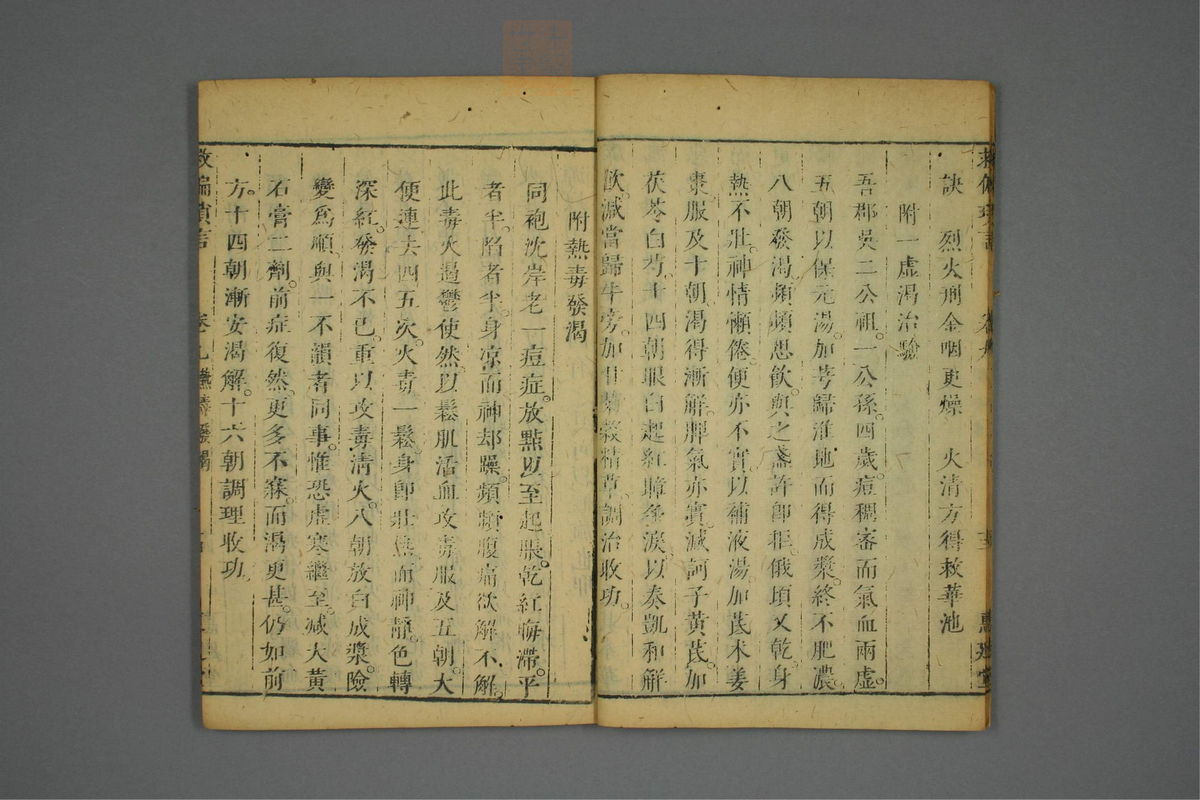 訣　烈火刑金咽更燥　火清方得救華池
附一虛渴治驗
吾郡吳二公祖一公孫四歲痘稠密而氣血兩虛
五朝以保元湯加芎歸淮地而得成漿終不肥濃
八朝發渴頻頻思飲與之盞許卽拒俄頃又乾身
熱不壯神情懶倦便亦不實以補液湯加芪朮姜
棗服及十朝渴得漸解脾氣亦實減訶子黃芪加
茯苓白芍十四朝眼白起紅障多淚以奏凱和解
飲減當歸牛旁加甘菊穀精草調治收功
附熱毒發渴
同袍沈岸老一痘症放點以至起脹乾紅晦滯平
者半陷者半身凉而神却躁頻頻腹痛欲解不解
此毒火遏鬱使然以鬆肌活血攻毒服及五朝大
便連去四五次火毒一鬆身卽壯熱而神靜色轉
深紅發渴不已重以攻毒清火八朝放白成漿險
變爲順與一不韻者同事惟恐虛寒繼至减大黃
石膏二劑前症復然更多不寐而渴更甚仍如前
方十四朝漸安渴解十六朝調理收功
救偏瑣言　卷九